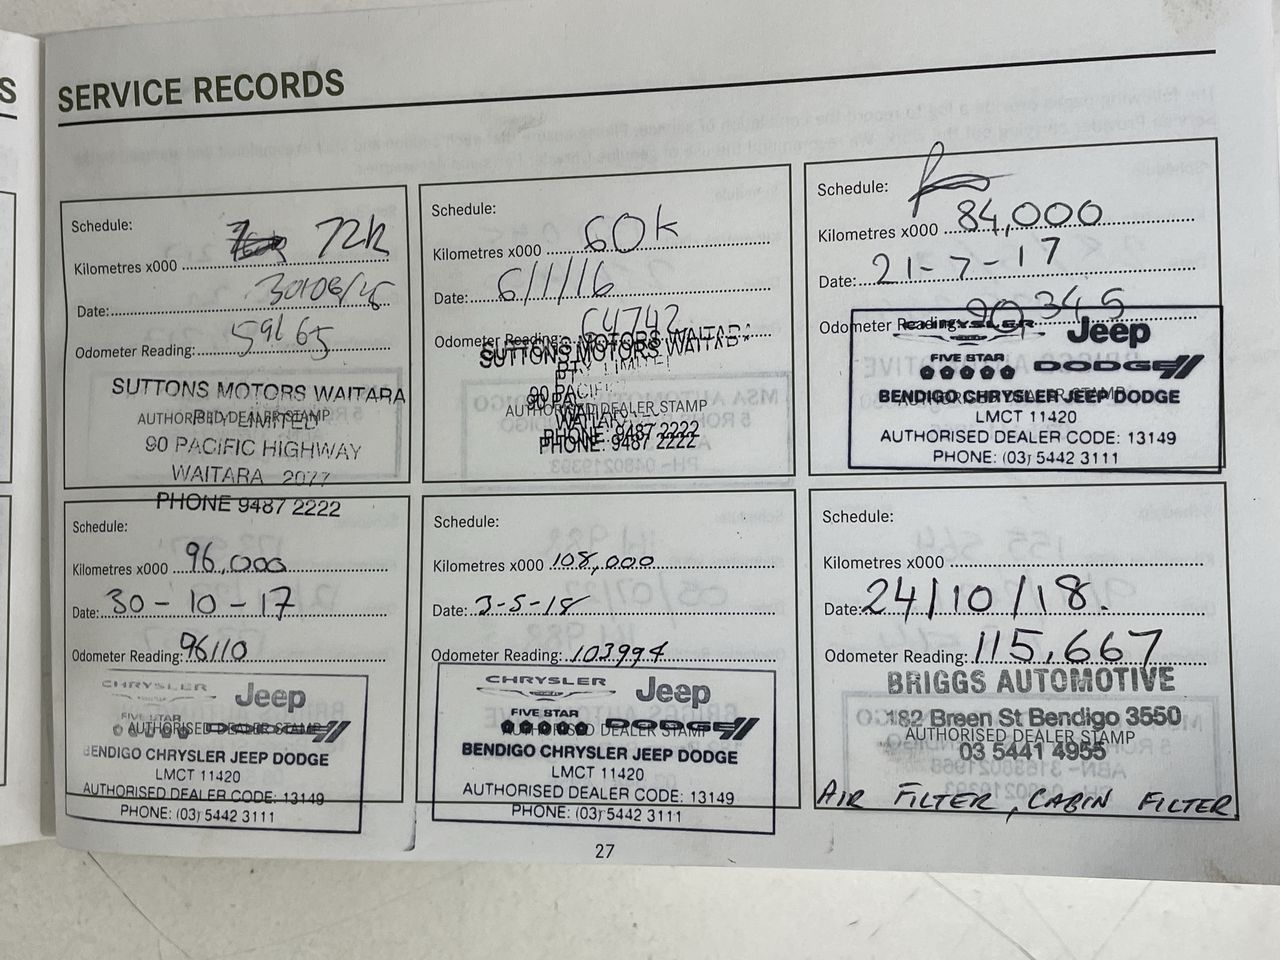 S
SERVICE RECORDS
Schedule:
Kilometres x000 72k
Date: 30/06/15
Odometer Reading: 59165
SUTTONS MOTORS WAITARA
AUTHORISED DEALER STAMP
PTY LIMITED
90 PACIFIC HIGHWAY
WAITARA 2077
PHONE 9487 2222
Schedule:
Kilometres x000 60k
Date: 6/1/16
Odometer Reading: 64742
SUTTONS MOTORS WAITARA
PTY LIMITED
90 PACIFIC
AUTHORISED DEALER STAMP
WAITARA
PHONE 9487 2222
Schedule:
Kilometres x000 84,000
Date: 21-7-17
Odometer Reading: 90,345
CHRYSLER Jeep
FIVE STAR DODGE
AUTHORISED DEALER STAMP
BENDIGO CHRYSLER JEEP DODGE
LMCT 11420
AUTHORISED DEALER CODE: 13149
PHONE: (03) 5442 3111
Schedule:
Kilometres x000 96,000
Date: 30-10-17
Odometer Reading: 96110
CHRYSLER Jeep
FIVE STAR DODGE
AUTHORISED DEALER STAMP
BENDIGO CHRYSLER JEEP DODGE
LMCT 11420
AUTHORISED DEALER CODE: 13149
PHONE: (03) 5442 3111
Schedule:
Kilometres x000 108,000
Date: 3-5-18
Odometer Reading: 103994
CHRYSLER Jeep
FIVE STAR DODGE
AUTHORISED DEALER STAMP
BENDIGO CHRYSLER JEEP DODGE
LMCT 11420
AUTHORISED DEALER CODE: 13149
PHONE: (03) 5442 3111
Schedule:
Kilometres x000
Date: 24/10/18.
Odometer Reading: 115,667
BRIGGS AUTOMOTIVE
182 Breen St Bendigo 3550
AUTHORISED DEALER STAMP
03 5441 4955
AIR FILTER, CABIN FILTER
27